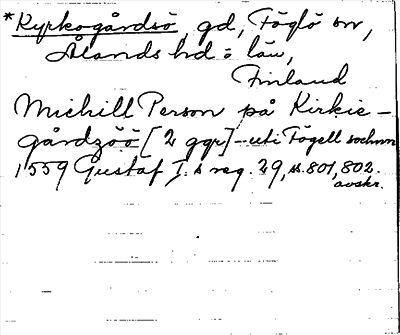 *Kyrkogårdsö, gd, Föglö sn,
Ålands hd o län,
Finland
Michill Person på Kirkie-
gårdzöö [2 ggr] - uti Fögell sochnn
1559 Gustaf I:s reg. 29, s. 801, 802.
avskr.